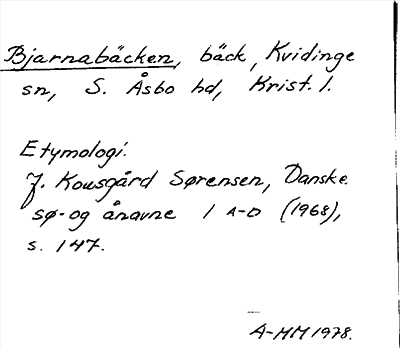 Bjarnabäcken, bäck, Kvidinge
sn, S. Åsbo hd, Krist. l.
Etymologi:
J. Kousgård Sørensen, Danske
sø- og ånavne 1 A-D (1968),
s. 147.
A-MM 1978.